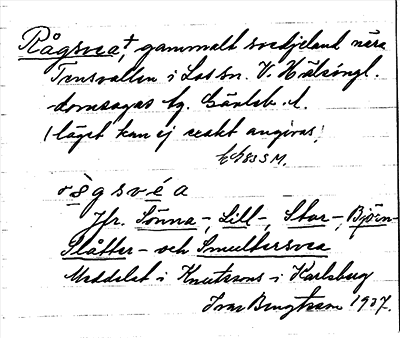 Rågsvea†, gammalt svedjeland nära
Tensvallen i Los sn. V. Hälsingl.
domsagas tg. Gävleb. l.
(läget kan ej exakt angivas!
r å g s v é a
Jfr. Sönna-, Lill-, Stor-, Björn-
Slåtter- och Smultersvea
Meddelat i Knutssons i Karlsberg
Ivar Bengtsson 1937.